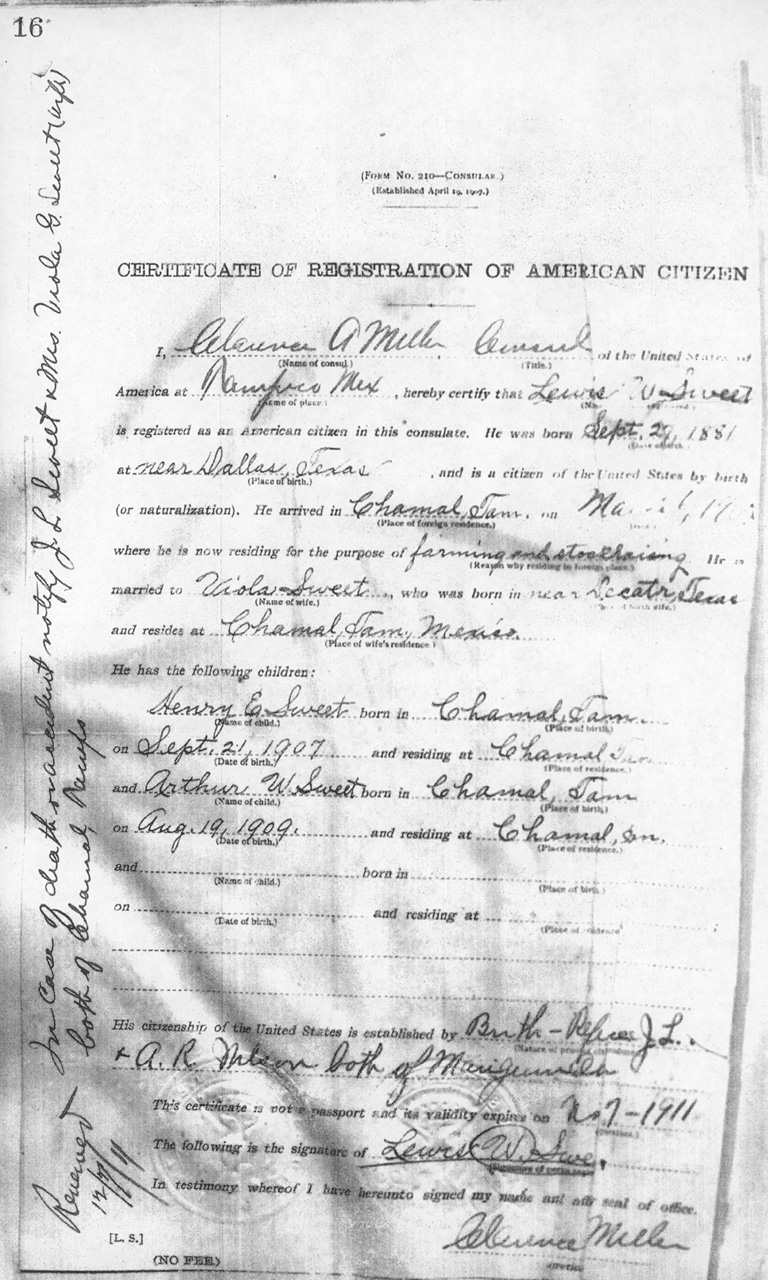 16
(FORM NO. 210—CONSULAR.)
(Established April 19, 1907.)
CERTIFICATE OF REGISTRATION OF AMERICAN CITIZEN
I, Clarence A Miller Consul of the United States of
(Name of consul.) (Title.)
America at Tampico Mex, hereby certify that Lewis W. Sweet
(Name of place.)
is registered as an American citizen in this consulate. He was born Sept. 29, 1881
at near Dallas, Texas, and is a citizen of the United States by birth
(Place of birth.)
(or naturalization). He arrived in Chamal, Tam. on
(Place of foreign residence.)
where he is now residing for the purpose of farming and stockraising He is
(Reason why residing in foreign place.)
married to Viola Sweet, who was born in near Decatr, Texas
(Name of wife.)
and resides at Chamal, Tam, Mexico.
(Place of wife's residence.)
He has the following children:
Henry E. Sweet born in Chamal, Tam.
(Name of child.) (Place of birth.)
on Sept. 21, 1907 and residing at Chamal
(Date of birth.) (Place of residence.)
and Arthur W. Sweet born in Chamal, Tam
(Name of child.) (Place of birth.)
on Aug. 19, 1909. and residing at Chamal,
(Date of birth.) (Place of residence.)
and born in
(Name of child.) (Place of birth.)
on and residing at
(Date of birth.) (Place of residence
His citizenship of the United States is established by Birth – J. L.
+ A. R. both of
This certificate is not a passport and its validity expires on 7–1911
The following is the signature of Lewis W.
In testimony whereof I have hereunto signed my name and seal of office.
Clarence Miller
[L. S.]
(NO FEE.)
In case of death or accident notify J L Sweet & Mrs. Viola G. Sweet (wife)
both of Chamal,
Renewed